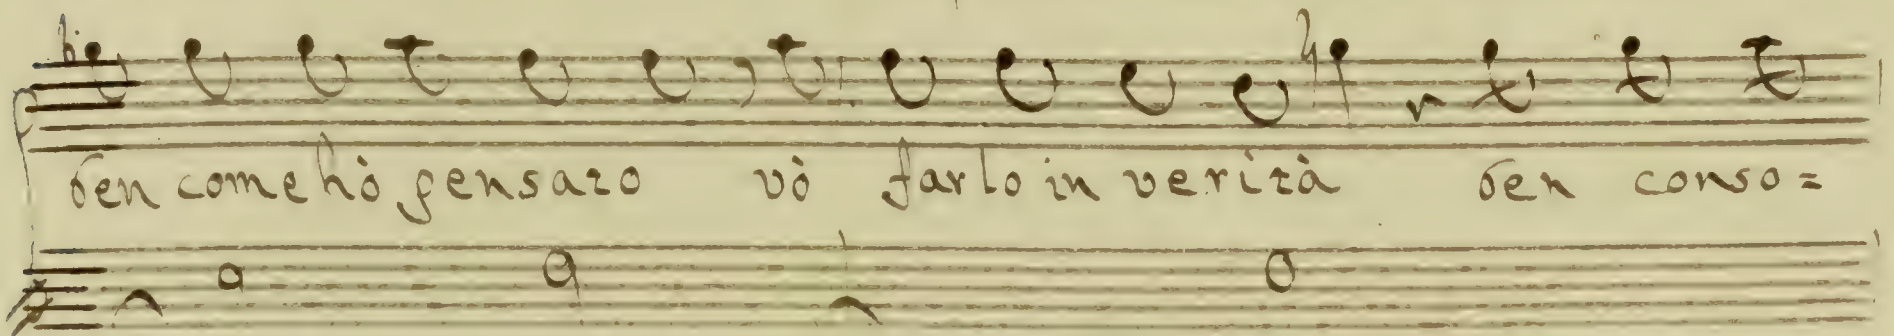 ben come hò pensato vò farlo in verità ben conso=